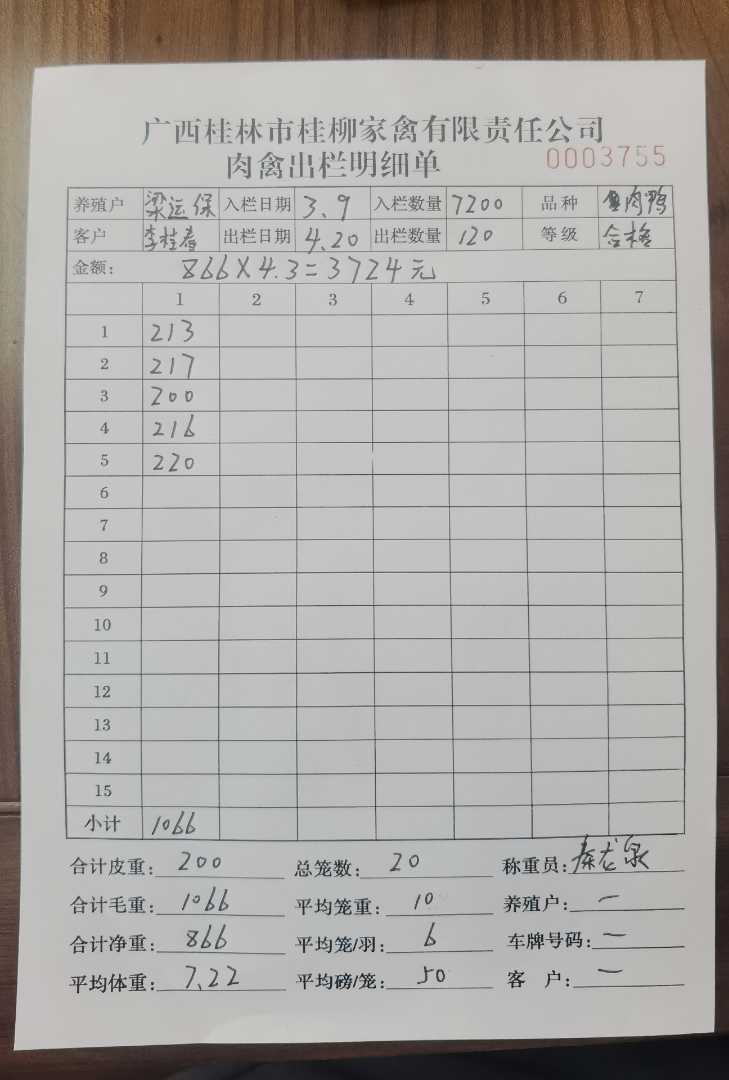 广西桂林市桂柳家禽有限责任公司
肉禽出栏明细单 0003755
养殖户 梁运保 入栏日期 3.9 入栏数量 7200 品种 肉鸭
客户 李桂春 出栏日期 4.20 出栏数量 120 等级 合格
金额: 866×4.3=3724元
1 2 3 4 5 6 7
1 213
2 217
3 200
4 216
5 220
6
7
8
9
10
11
12
13
14
15
小计 1066
合计皮重: 200 总笼数: 20 称重员: 秦龙泉
合计毛重: 1066 平均笼重: 10 养殖户: 一
合计净重: 866 平均笼/羽: 6 车牌号码: 一
平均体重: 7.22 平均磅/笼: 50 客 户: 一